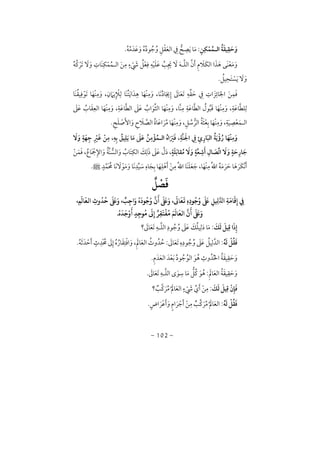 وَحَقِيقَةُ الـمُمْكِنِ: مَا يَصِحُّ فِي العَقْلِ وُجُودُهُ وَعَدَمُهُ.
وَمَعْنَى هَذَا الكَلَامِ أَنَّ اللَّـهَ لَا يَجِبُ عَلَيْهِ فِعْلُ شَيْءٍ مِنَ الـمُمْكِنَاتِ وَلَا تَرْكُهُ
وَلَا يَسْتَحِيلُ.
فَمِنَ الجَائِزَاتِ فِي حَقِّهِ تَعَالَى إِيجَادُنَا، وَمِنْهَا هِدَايَتُنَا لِلْإِيمَانِ، وَمِنْهَا تَوْفِيقُنَا
لِلطَّاعَةِ، وَمِنْهَا قَبُولُ الطَّاعَةِ مِنَّا، وَمِنْهَا الثَّوَابُ عَلَى الطَّاعَةِ، وَمِنْهَا العِقَابُ عَلَى
الـمَعْصِيَةِ، وَمِنْهَا بِعْثَةُ الرُّسُلِ، وَمِنْهَا مُرَاعَاةُ الصَّلَاحِ وَالأَصْلَحِ.
وَمِنْهَا رُؤْيَةُ البَارِئِ فِي الجَنَّةِ، فَيَرَاهُ الـمُؤْمِنُ عَلَى مَا يَلِيقُ بِهِ، مِنْ غَيْرِ جِهَةٍ وَلَا
جَارِحَةٍ وَلَا اتِّصَالِ أَشِعَّةٍ وَلَا مُقَابَلَةٍ، دَلَّ عَلَى ذَلِكَ الكِتَابُ وَالسُّنَّةُ وَالإِجْمَاعُ، فَمَنْ
أَنْكَرَهَا حَرَمَهُ اللهُ مِنْهَا، جَعَلَنَا اللهُ مِنْ أَهْلِهَا بِجَاهِ سَيِّدِنَا وَمَوْلَانَا مُحَمَّدٍ ﷺ.
فَصْلٌ
فِي إِقَامَةِ الدَّلِيلِ عَلَى وُجُودِهِ تَعَالَى، وَعَلَى أَنَّ وُجُودَهُ وَاجِبٌ، وَعَلَى حُدُوثِ العَالَمِ،
وَعَلَى أَنَّ العَالَمَ مُفْتَقِرٌ إِلَى مُوجِدٍ أَوْجَدَهُ
إِذَا قِيلَ لَكَ: مَا دَلِيلُكَ عَلَى وُجُودِ اللَّـهِ تَعَالَى؟
فَقُلْ لَهُ: الدَّلِيلُ عَلَى وُجُودِهِ تَعَالَى: حُدُوثُ العَالَمِ، وَافْتِقَارُهُ إِلَى مُحْدِثٍ أَحْدَثَهُ.
وَحَقِيقَةُ الحُدُوثِ هُوَ الوُجُودُ بَعْدَ العَدَمِ.
وَحَقِيقَةُ العَالَمِ: هُوَ كُلُّ مَا سِوَى اللَّـهِ تَعَالَى.
فَإِنْ قِيلَ لَكَ: مِنْ أَيِّ شَيْءٍ العَالَمُ مُرَكَّبٌ؟
فَقُلْ لَهُ: العَالَمُ مُرَكَّبٌ مِنْ أَجْرَامٍ وَأَعْرَاضٍ.
- 102 -